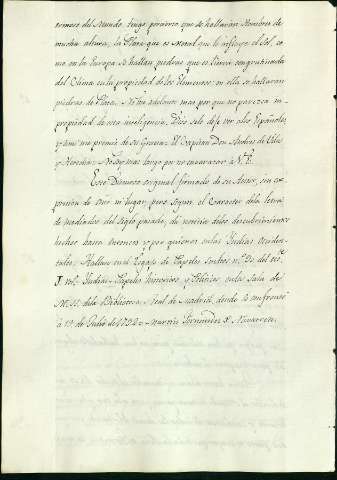 extremos del Mundo, tengo por cierto que se hallarán Hombres de
mucha altura, la Plata que es Metal que le influye el Sol, co-
mo en la Europa se hallan piedras que es tierra congrutinada
del Clima en la propiedad de los Elementos: en ella se hallaran
piedras de Plata. No me adelanto mas por que no parezca im-
propiedad de esta inteligencia. Dios solo deje ver a los Españoles
y a mi me premie de su Gracia. El Capitan Don Andres de
y Heredia. No soy mas largo por no
Este Discurso original firmado de su Autor, sin ex-
presion de año ni lugar, pero segun el caracter de la letra
de mediados del Siglo pasado, da noticia delos descubrimientos
hechos hasta entonces y por quienes en las Indias Occiden-
tales: Hallase en el Legajo de Papeles Sueltos nº 30 del
J. tol. Indias Papeles historicos y Politicos en la Sala de
M.SS. dela Biblioteca Real de Madrid, donde lo confronté
à 19 de Julio de 1792 = Martin Fernandez de Navarrete.